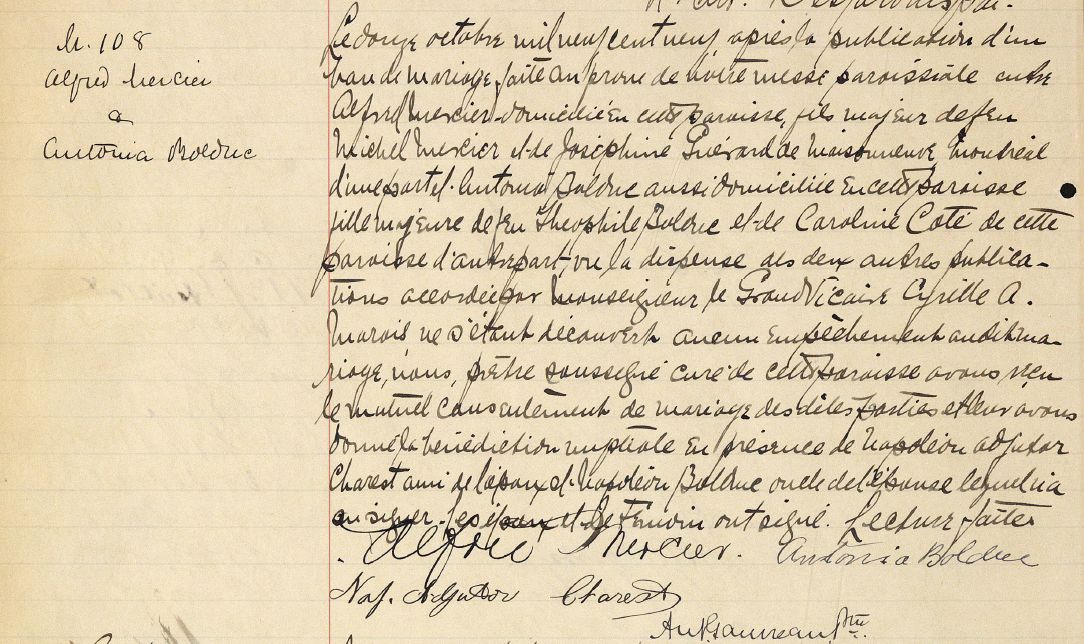 M. 108
Alfred Mercier
&
Antonia Bolduc
Le douze octobre mil neuf cent neuf, après la publication d'un
ban de mariage faite au prône de notre messe paroissiale entre
Alfred Mercier domicilié en cette paroisse, fils majeur de feu
Michel Mercier et de Joséphine Guérard de Maisonneuve, Montréal
d'une part et Antonia Bolduc aussi domiciliée en cette paroisse
fille majeure de feu Théophile Bolduc et de Caroline Coté de cette
paroisse d'autre part, vu la dispense des deux autres publica-
tions accordée par Monseigneur le Grand Vicaire Cyrille A.
Marois, ne s'étant découvert aucun empêchement au dit ma-
riage, nous, prêtre soussigné curé de cette paroisse avons reçu
le mutuel consentement de mariage des dites parties et leur avons
donné la bénédiction nuptiale en présence de Napoléon Adjutor
Charest ami de l'époux et Napoléon Bolduc oncle de l'épouse lequel n'a
su signer. Les époux et le témoin ont signé. Lecture faite
Alfred Mercier. Antonia Bolduc
Nap. Adjutor Charest
Ptre.